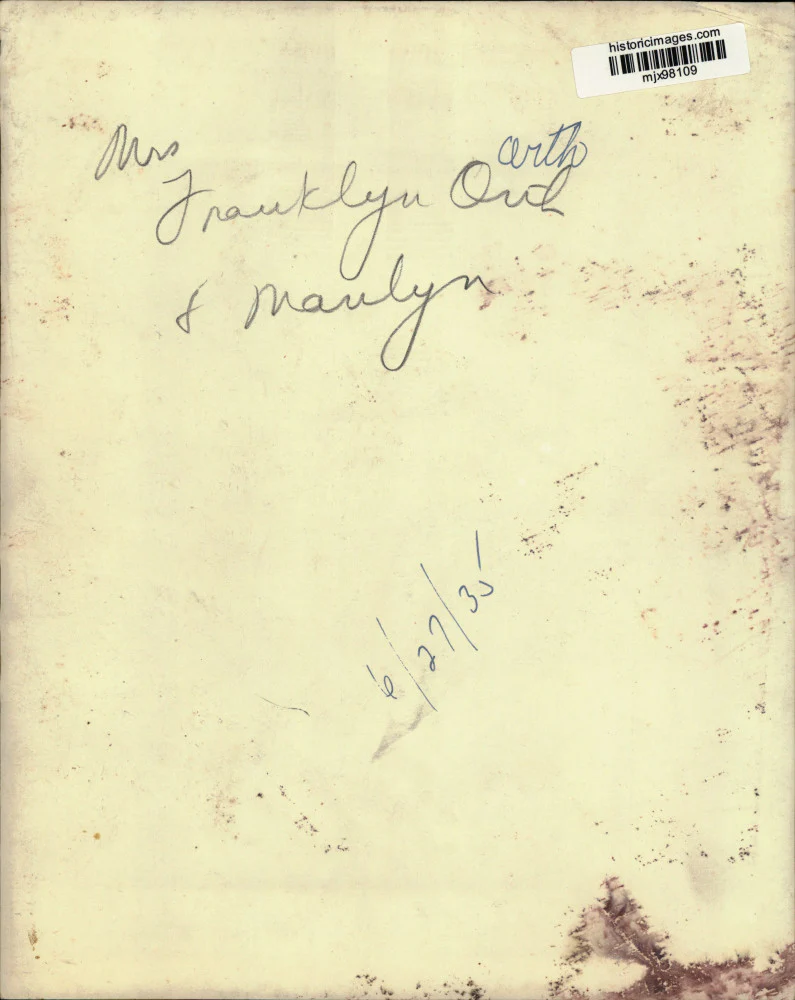 historicimages.com
mjx98109
Mrs
arth
Franklyn Orth
& Marilyn
6/27/35